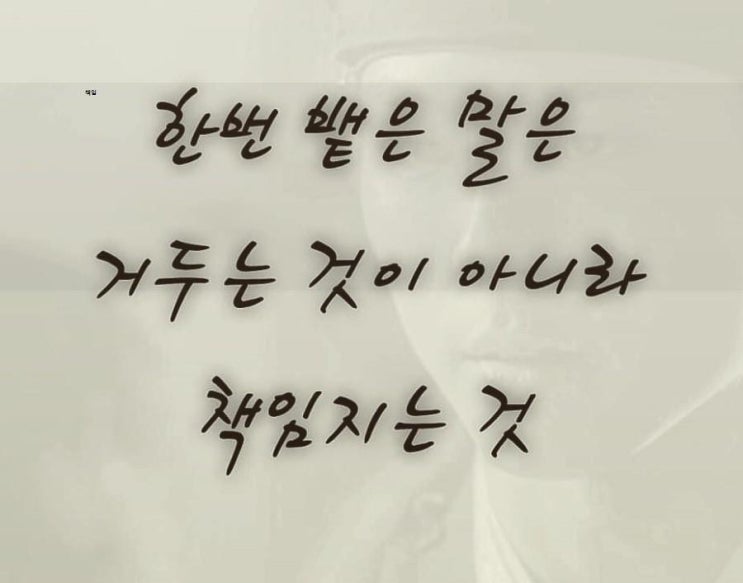 책임
한번 뱉은 말은
거두는 것이 아니라
책임지는 것